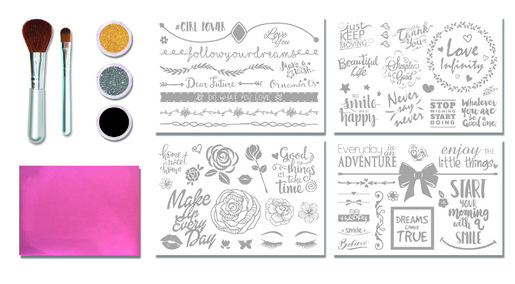 #GIRL POWER
Love
You
followyourdreams
Make
a
Wish
Dear Future
Ornaments
DO WHAT YOU LOVE
just
KEEP
MOVING
Thank
You
Beautiful
Life
Simple
Good
Love
Infinity
smile
be
happy
Never
say
never
STOP
WISHING
START
DOING
Whatever
you are
be a
Good one.
home
sweet
home
Good
things
take
time
Make
Up
Every
Day
Everyday
ADVENTURE
enjoy the
little things
smile
Believe
DREAMS
COME
TRUE
START
your
Morning
with a
SMILE